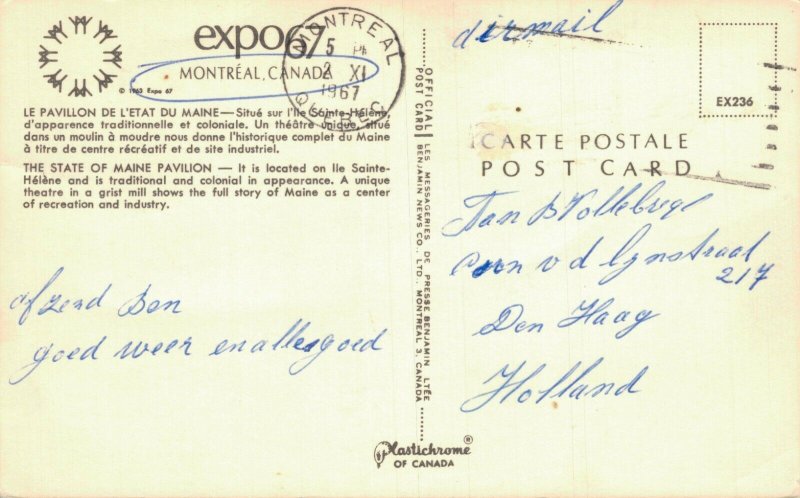 expo67
MONTRÉAL, CANADA
© 1963 Expo 67
MONTREAL
5 PM
2 XI
1967
QUEBEC
LE PAVILLON DE L'ETAT DU MAINE — Situé sur l'Ile Sainte-Hélène,
d'apparence traditionnelle et coloniale. Un théâtre unique, situé
dans un moulin à moudre nous donne l'historique complet du Maine
à titre de centre récréatif et de site industriel.
THE STATE OF MAINE PAVILION — It is located on Ile Sainte-
Hélène and is traditional and colonial in appearance. A unique
theatre in a grist mill shows the full story of Maine as a center
of recreation and industry.
afzend Ben
goed weer en alles goed
OFFICIAL LES MESSAGERIES DE PRESSE BENJAMIN LTÉE
POST CARD BENJAMIN NEWS CO., LTD., MONTREAL 3, CANADA
Plastichrome®
OF CANADA
airmail
EX236
CARTE POSTALE
POST CARD
Jan
v d Lynstraat
217
Den Haag
Holland